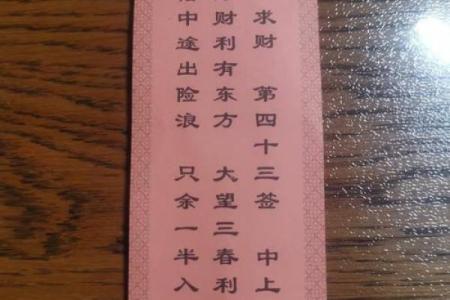 求财 第四十三签 中上
财利有东方 大望三春利
中途出险浪 只余一半入